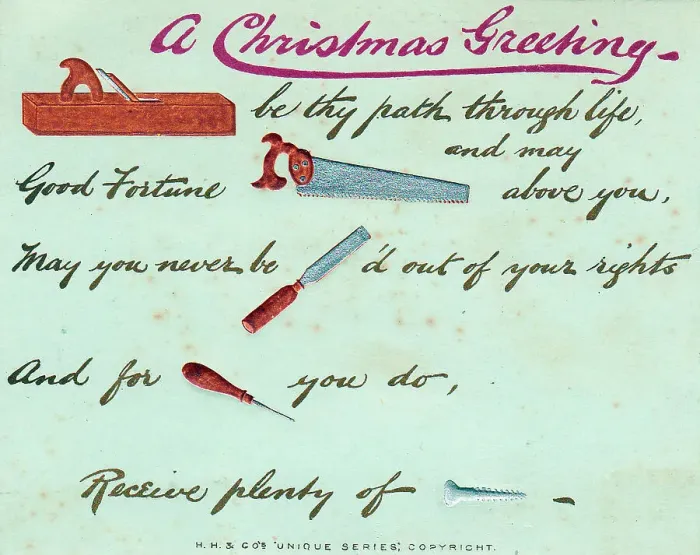 A Christmas Greeting
be thy path through life,
and may
Good Fortune above you,
May you never be 'd out of your rights
And for you do,
Receive plenty of
H. H. & CO'S 'UNIQUE SERIES', COPYRIGHT.